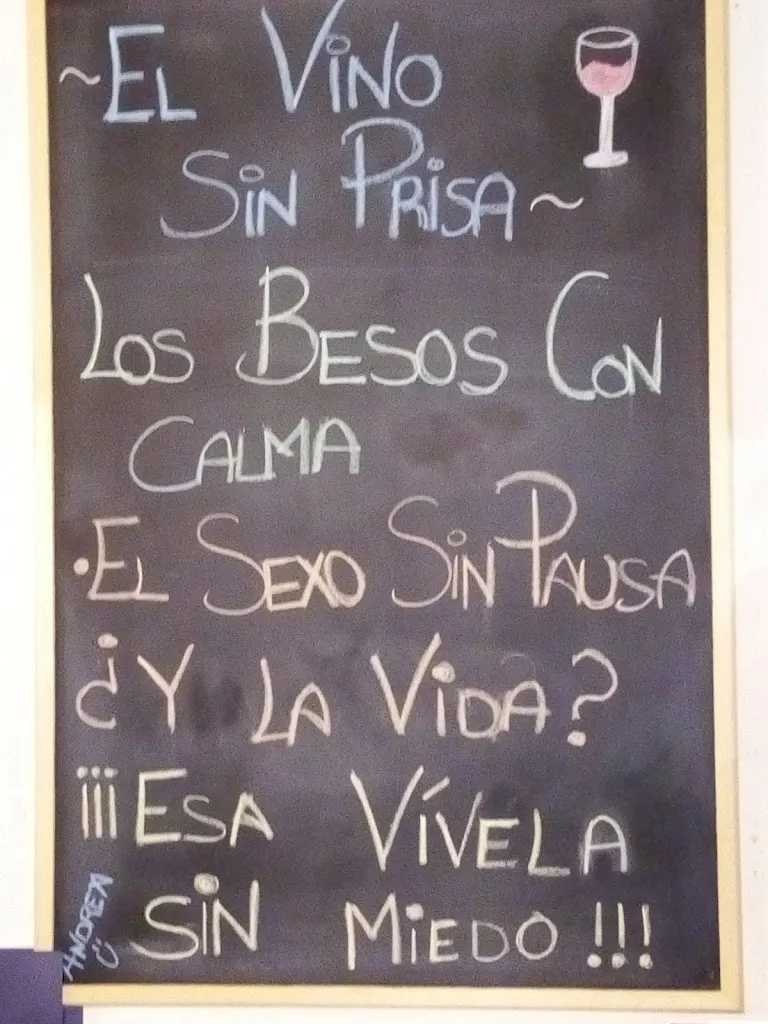 ~EL VINO
SIN PRISA~
LOS BESOS CON
CALMA
·EL SEXO SIN PAUSA
¿Y LA VIDA?
¡¡¡ESA VÍVELA
SIN MIEDO!!!
ANDREA